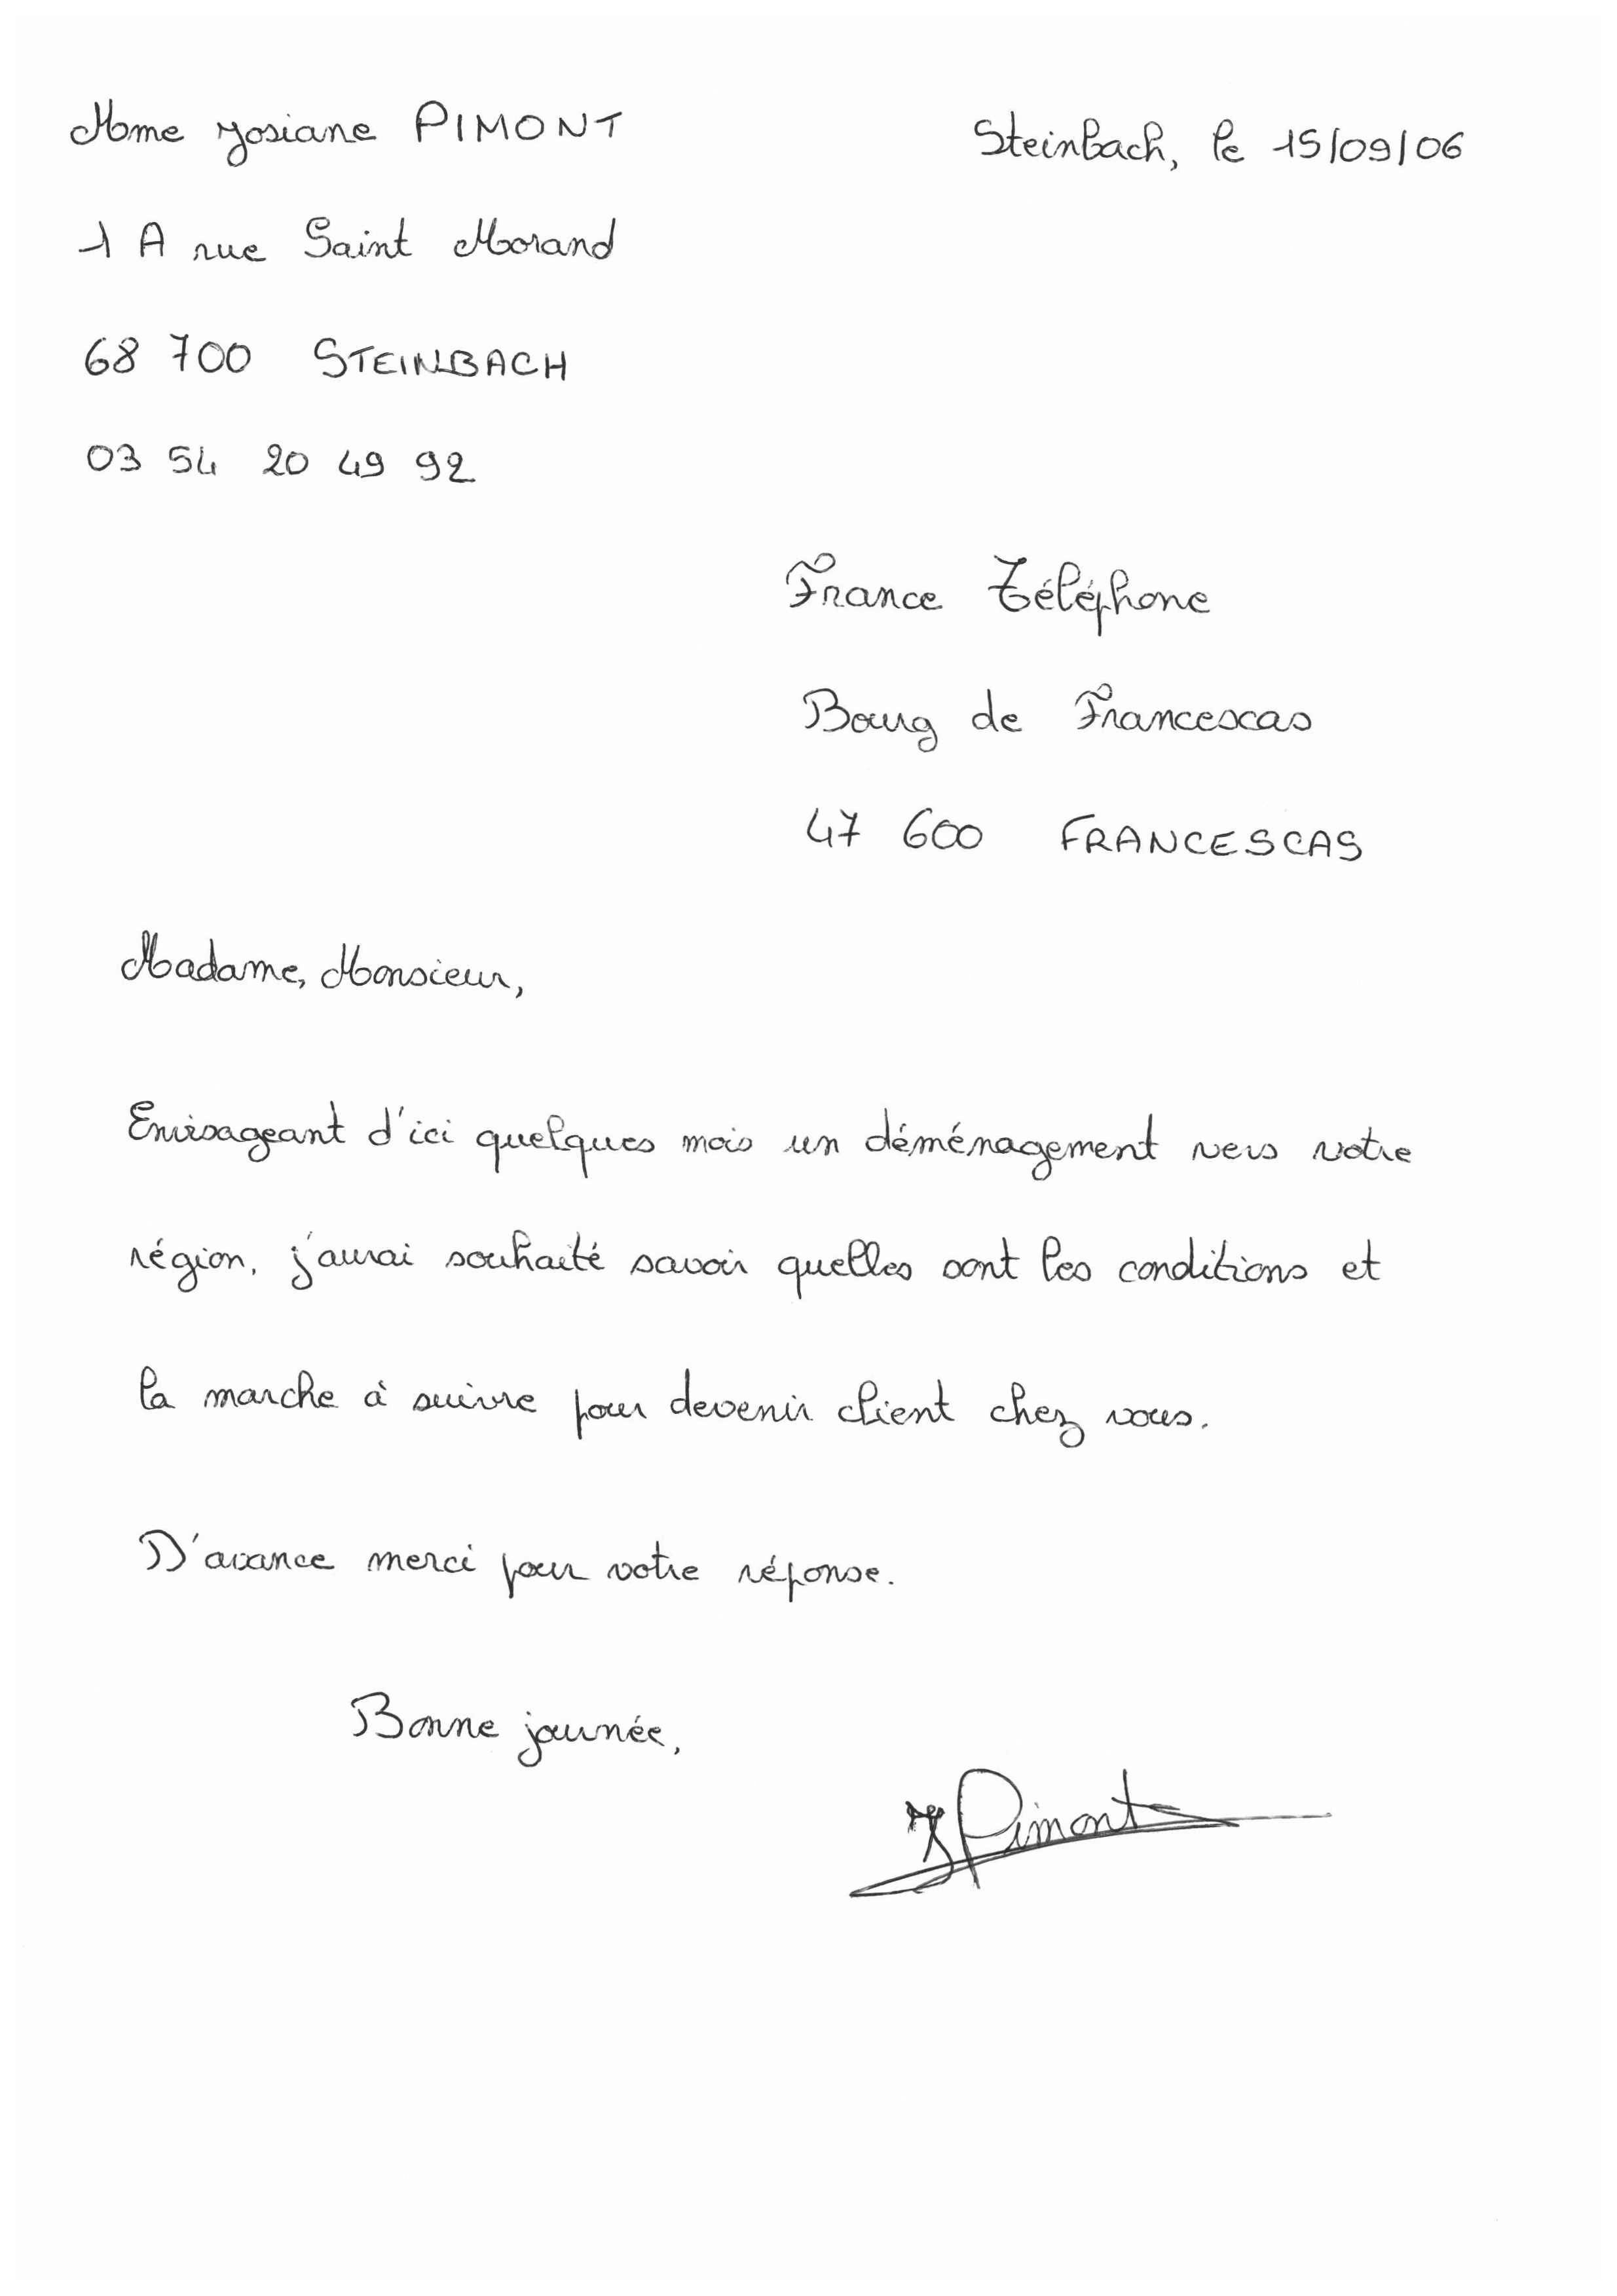 Mme Josiane PIMONT
Steinbach, le 15/09/06
1 A rue Saint Morand
68 700 STEINBACH
03 54 20 49 92
France Téléphone
Bourg de Francescas
47 600 FRANCESCAS
Madame, Monsieur,
Envisageant d'ici quelques mois un déménagement vers votre
région, j'aurai souhaité savoir quelles sont les conditions et
la marche à suivre pour devenir client chez vous.
D'avance merci pour votre réponse.
Bonne journée,
J Pimont